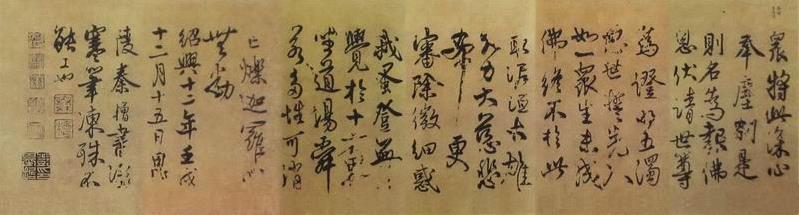 衆將此深心
奉塵刹是
則名為報佛
恩伏請世尊
為證明五濁
惡世誓先入
如一衆生未成
佛終不於此
取泥洹大雄
大力大慈悲
希更
審除微細惑
我蚤登無上
覺於十方界
坐道場舜
若多性可銷
亡爍迦羅心
無動
紹興十二年壬戌
十二月十五日思
陵秦僧書
寒筆凍殊不
能工也